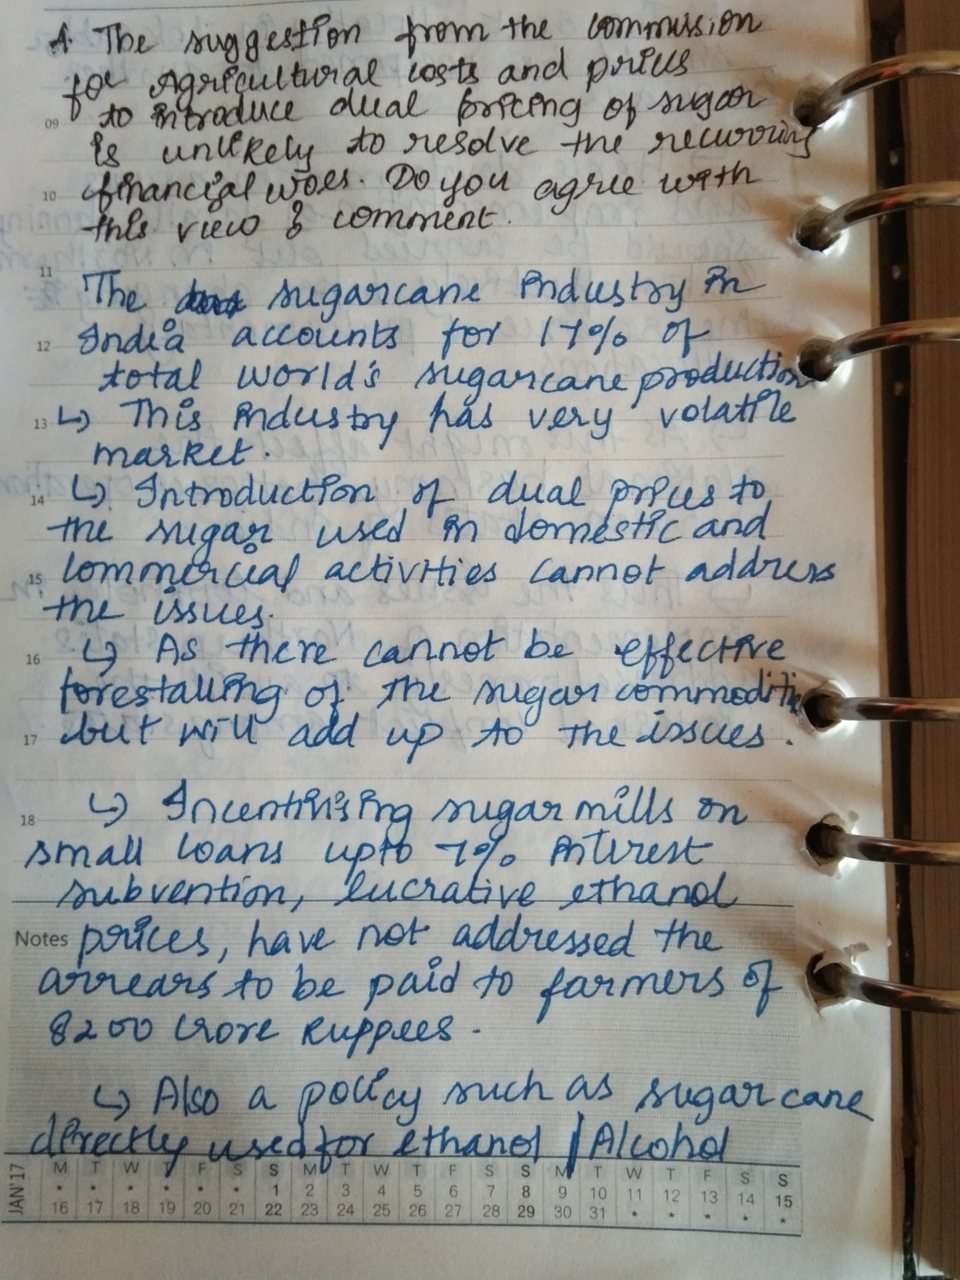 A. The suggestion from the commission
for Agricultural costs and prices
09 to introduce dual pricing of sugar
is unlikely to resolve the recurring
10 financial woes. Do you agree with
this view & comment.
11
The sugarcane industry in
12 India accounts for 17% of
total world's sugarcane production
13 ↳ This industry has very volatile
market.
14 ↳ Introduction of dual prices to
the sugar used in domestic and
15 commercial activities cannot address
the issues.
16 ↳ As there cannot be effective
forestalling of the sugar commodities
17 but will add up to the issues.
18 ↳ Incentivising sugar mills on
small loans upto 7% interest
subvention, lucrative ethanol
Notes prices, have not addressed the
arrears to be paid to farmers of
8200 crore ruppees.
↳ Also a policy such as sugarcane
directly used for ethanol / Alcohol
JAN'17
M T W T F S S M T W T F S S M T W T F S S
* * * * * * 1 2 3 4 5 6 7 8 9 10 11 12 13 14 15
16 17 18 19 20 21 22 23 24 25 26 27 28 29 30 31 * * * * *